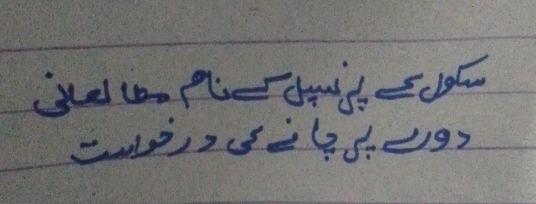 سکول کے پرنسپل کے نام مطالعاتی
دورے پر جانے کی درخواست